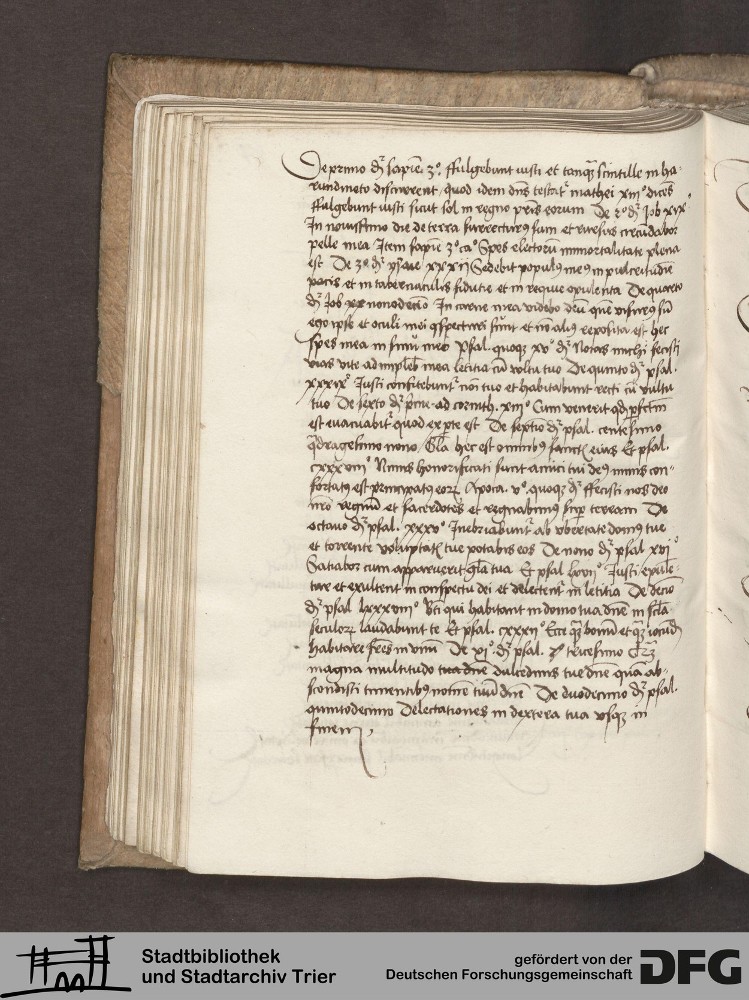 De primo dr̄ sapiē. 3º. ffulgebunt iusti et tanqȝ scintille in ha-
rundineto discurrent, quod idem dn̄s testatʳ mathei xiijº dicēs
ffulgebunt iusti sicut sol in regno pr̄is eorum De 2º dr̄ Job xixº
In nouissimo die de terra surrecturꝰ sum et rursus circūdabor
pelle mea Item sapiē 3º caº Spes electorū immortalitate plena
est De 3º dr̄ ysaie xxxij Sedebit populꝰ meꝰ in pulcritudīe
pacis et in tabernaculis fiducie et in requie opulenta De quarto
dr̄ Job nonodecīo In carne mea videbo deū quē visurꝰ sū
ego ipse et oculi mei cōspecturi sunt et nō aliꝰ reposita est hec
spes mea in sinu meo Psal. quoqȝ xvº dr̄ Notas michi fecisti
vias vite adimpleb̄ mea letitia cū vultu tuo De quinto dr̄ psal.
xxxixº Iusti confitebuntʳ noī tuo et habitabunt recti cū vultu
tuo De sexto dr̄ ad corinth. xiijº Cum venerit qd̄ pfectū
est euacuabitʳ quod ex pte est De septīo dr̄ psal. centesimo
qͣdragesimo nono Gl̄a hec est omnibꝰ sanctis eius Et psal.
cxxxviijº Nimis honorificati sunt amici tui deꝰ nimis con-
fortatꝰ est principatꝰ eorꝝ Apoca. vº quoqȝ dr̄ ffecisti nos deo
nr̄o regnū et sacerdotes et regnabimꝰ suꝑ terram De
octauo dr̄ psal. xxxvº Inebriabuntʳ ab vbertate domꝰ tue
et torrente voluptatis tue potabis eos De nono dr̄ psal xvjº
Satiabor cum apparuerit gl̄a tua Et psal lxvijº Iusti epule-
tur et exultent in conspectu dei et delectentʳ in letitia De decīo
dr̄ psal lxxxiijº Bt̄i qui habitant in domo tua dn̄e in scl̄a
seculorꝝ laudabunt te Et psal. cxxxijº Ecce qͣȝ bonū et qͣȝ iocūd
habitare fr̄es in vnū De xjº dr̄ psal. tricesimo Qͣȝ
magna multitudo tua dn̄e dulcedinis tue dn̄e quā ab-
scondisti timentibꝰ De duodecimo dr̄ psal.
quintodecimo Delectationes in dextera tua vsqȝ in
finem
Stadtbibliothek
und Stadtarchiv Trier
gefördert von der
Deutschen Forschungsgemeinschaft
DFG